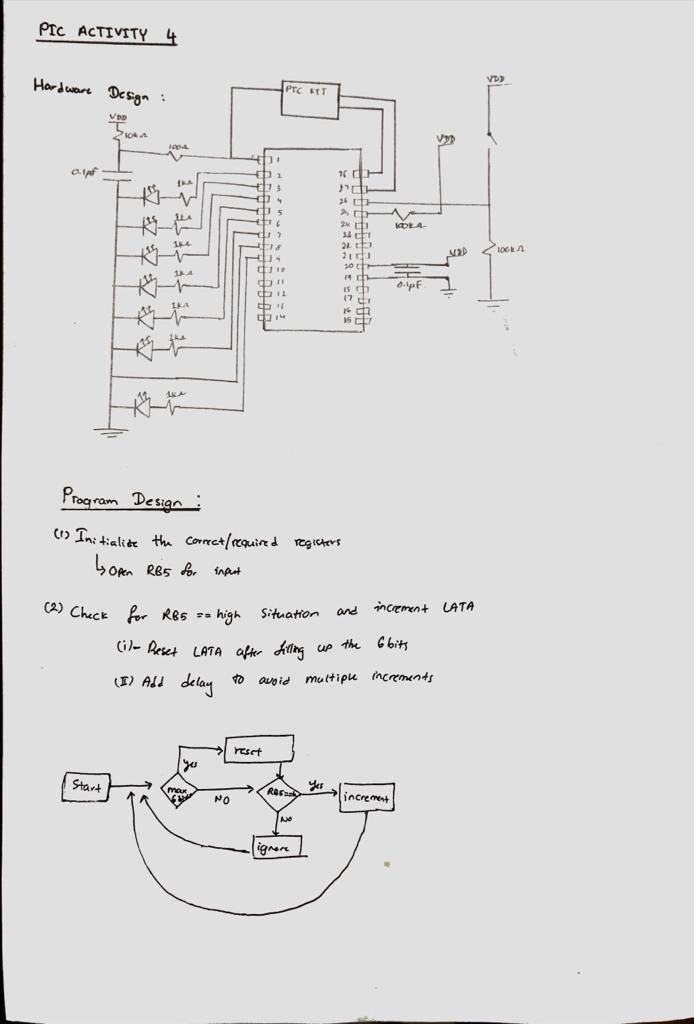 PIC ACTIVITY 4
Hardware Design :
PIC KIT
VDD
10kΩ
100Ω
0.1µF
1kΩ
1kΩ
1kΩ
1kΩ
1kΩ
1kΩ
1kΩ
1
2
3
4
5
6
7
8
9
10
11
12
13
14
28
27
26
25
24
23
22
21
20
19
18
17
16
15
VDD
VDD
100kΩ
100kΩ
VDD
0.1µF
Program Design :
(1) Initialize the correct/required registers
↳ Open RB5 for input
(2) Check for RB5 == high Situation and increment LATA
(i) - Reset LATA after filling up the 6 bits
(II) Add delay to avoid multiple increments
Start
max 6 bits
yes
reset
NO
RB5==h
yes
increment
NO
ignore